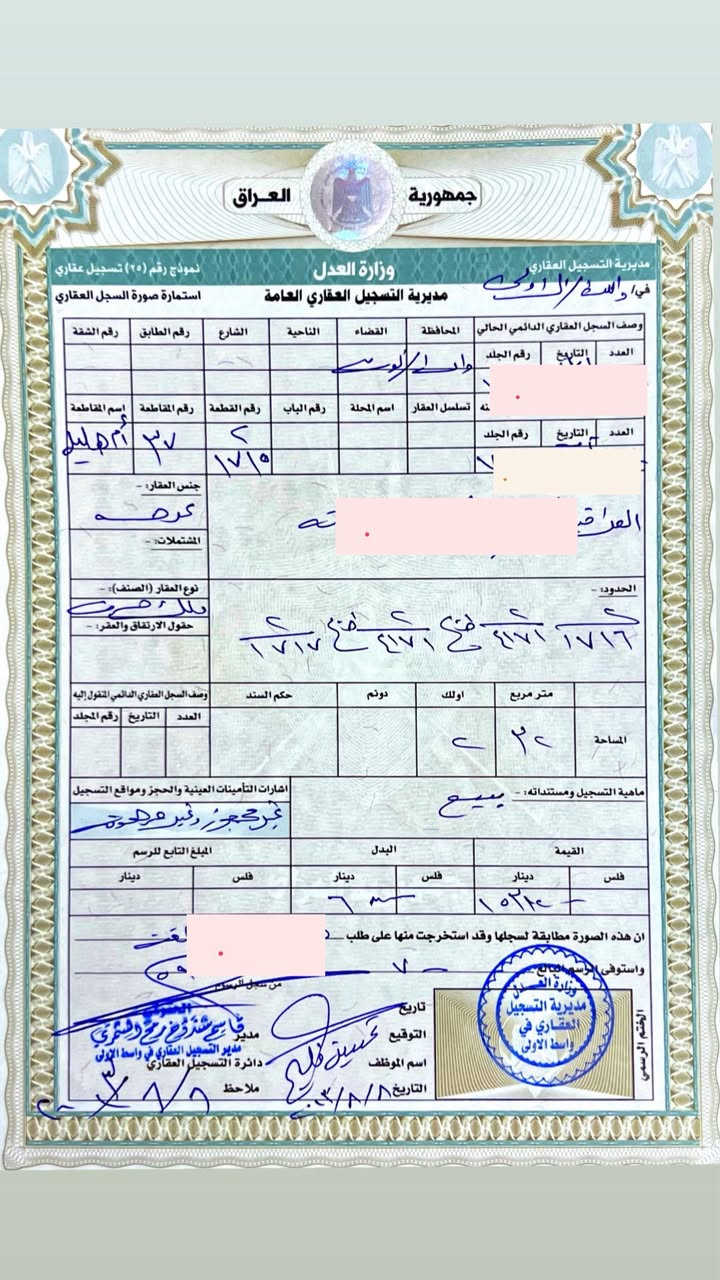 جمهورية العراق
مديرية التسجيل العقاري
وزارة العدل
نموذج رقم (٢٥) تسجيل عقاري
في/ واسط/الاولى
مديرية التسجيل العقاري العامة
استمارة صورة السجل العقاري
وصف السجل العقاري الدائمي الحالي المحافظة القضاء الناحية الشارع رقم الطابق رقم الشقة
العدد التاريخ رقم الجلد
واسط/كوت
تسلسل العقار اسم المحلة رقم الباب رقم القطعة رقم المقاطعة اسم المقاطعة
العدد التاريخ رقم الجلد
٢ ٣٧ أم هليل
١٧١٥
جنس العقار: -
عرصه
المشتملات: -
الحدود: -
نوع العقار (الصنف): -
ملك صرف
حقول الارتفاق والعقر: -
٢ ٢ ٢ ٢
١٧١٦ ٤١٧١ ٤١٧١ ١٧١٧
متر مربع اولك دونم حكم السند وصف السجل العقاري الدائمي المنقول اليه
العدد التاريخ رقم المجلد
المساحة ٣٢ ٢
ماهية التسجيل ومستنداته: - بيع
اشارات التأمينات العينية والحجز ومواقع التسجيل
غير محجوز وغير مرهون
القيمة البدل المبلغ التابع للرسم
فلس دينار فلس دينار فلس دينار
ان هذه الصورة مطابقة لسجلها وقد استخرجت منها على طلب
واستوفى الرسم البالغ
وزارة العدل
مديرية التسجيل العقاري في واسط الاولى
الختم الرسمي
تاريخ
التوقيع
اسم الموظف
التاريخ ٢٠١٣/٨/٨
الحقوقي
مدير
مدير التسجيل العقاري في واسط الاولى
دائرة التسجيل العقاري
ملاحظ